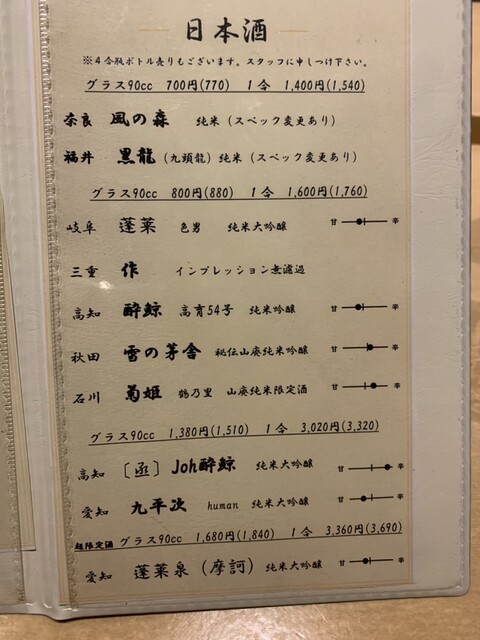 日本酒
※4合瓶ボトル売りもございます。スタッフに申しつけ下さい。
グラス90cc 700円(770) 1合 1,400円(1,540)
奈良 風の森 純米（スペック変更あり）
福井 黒龍（九頭龍）純米（スペック変更あり）
グラス90cc 800円(880) 1合 1,600円(1,760)
岐阜 蓬莱 色男 純米大吟醸 甘 辛
三重 作 インプレッション無濾過
高知 酔鯨 高育54号 純米吟醸 甘 辛
秋田 雪の茅舎 秘伝山廃純米吟醸 甘 辛
石川 菊姫 鶴乃里 山廃純米限定酒 甘 辛
グラス90cc 1,380円(1,510) 1合 3,020円(3,320)
高知 〔函〕Joh酔鯨 純米大吟醸 甘 辛
愛知 九平次 human 純米大吟醸 甘 辛
超限定酒 グラス90cc 1,680円(1,840) 1合 3,360円(3,690)
愛知 蓬莱泉（摩訶）純米大吟醸 甘 辛